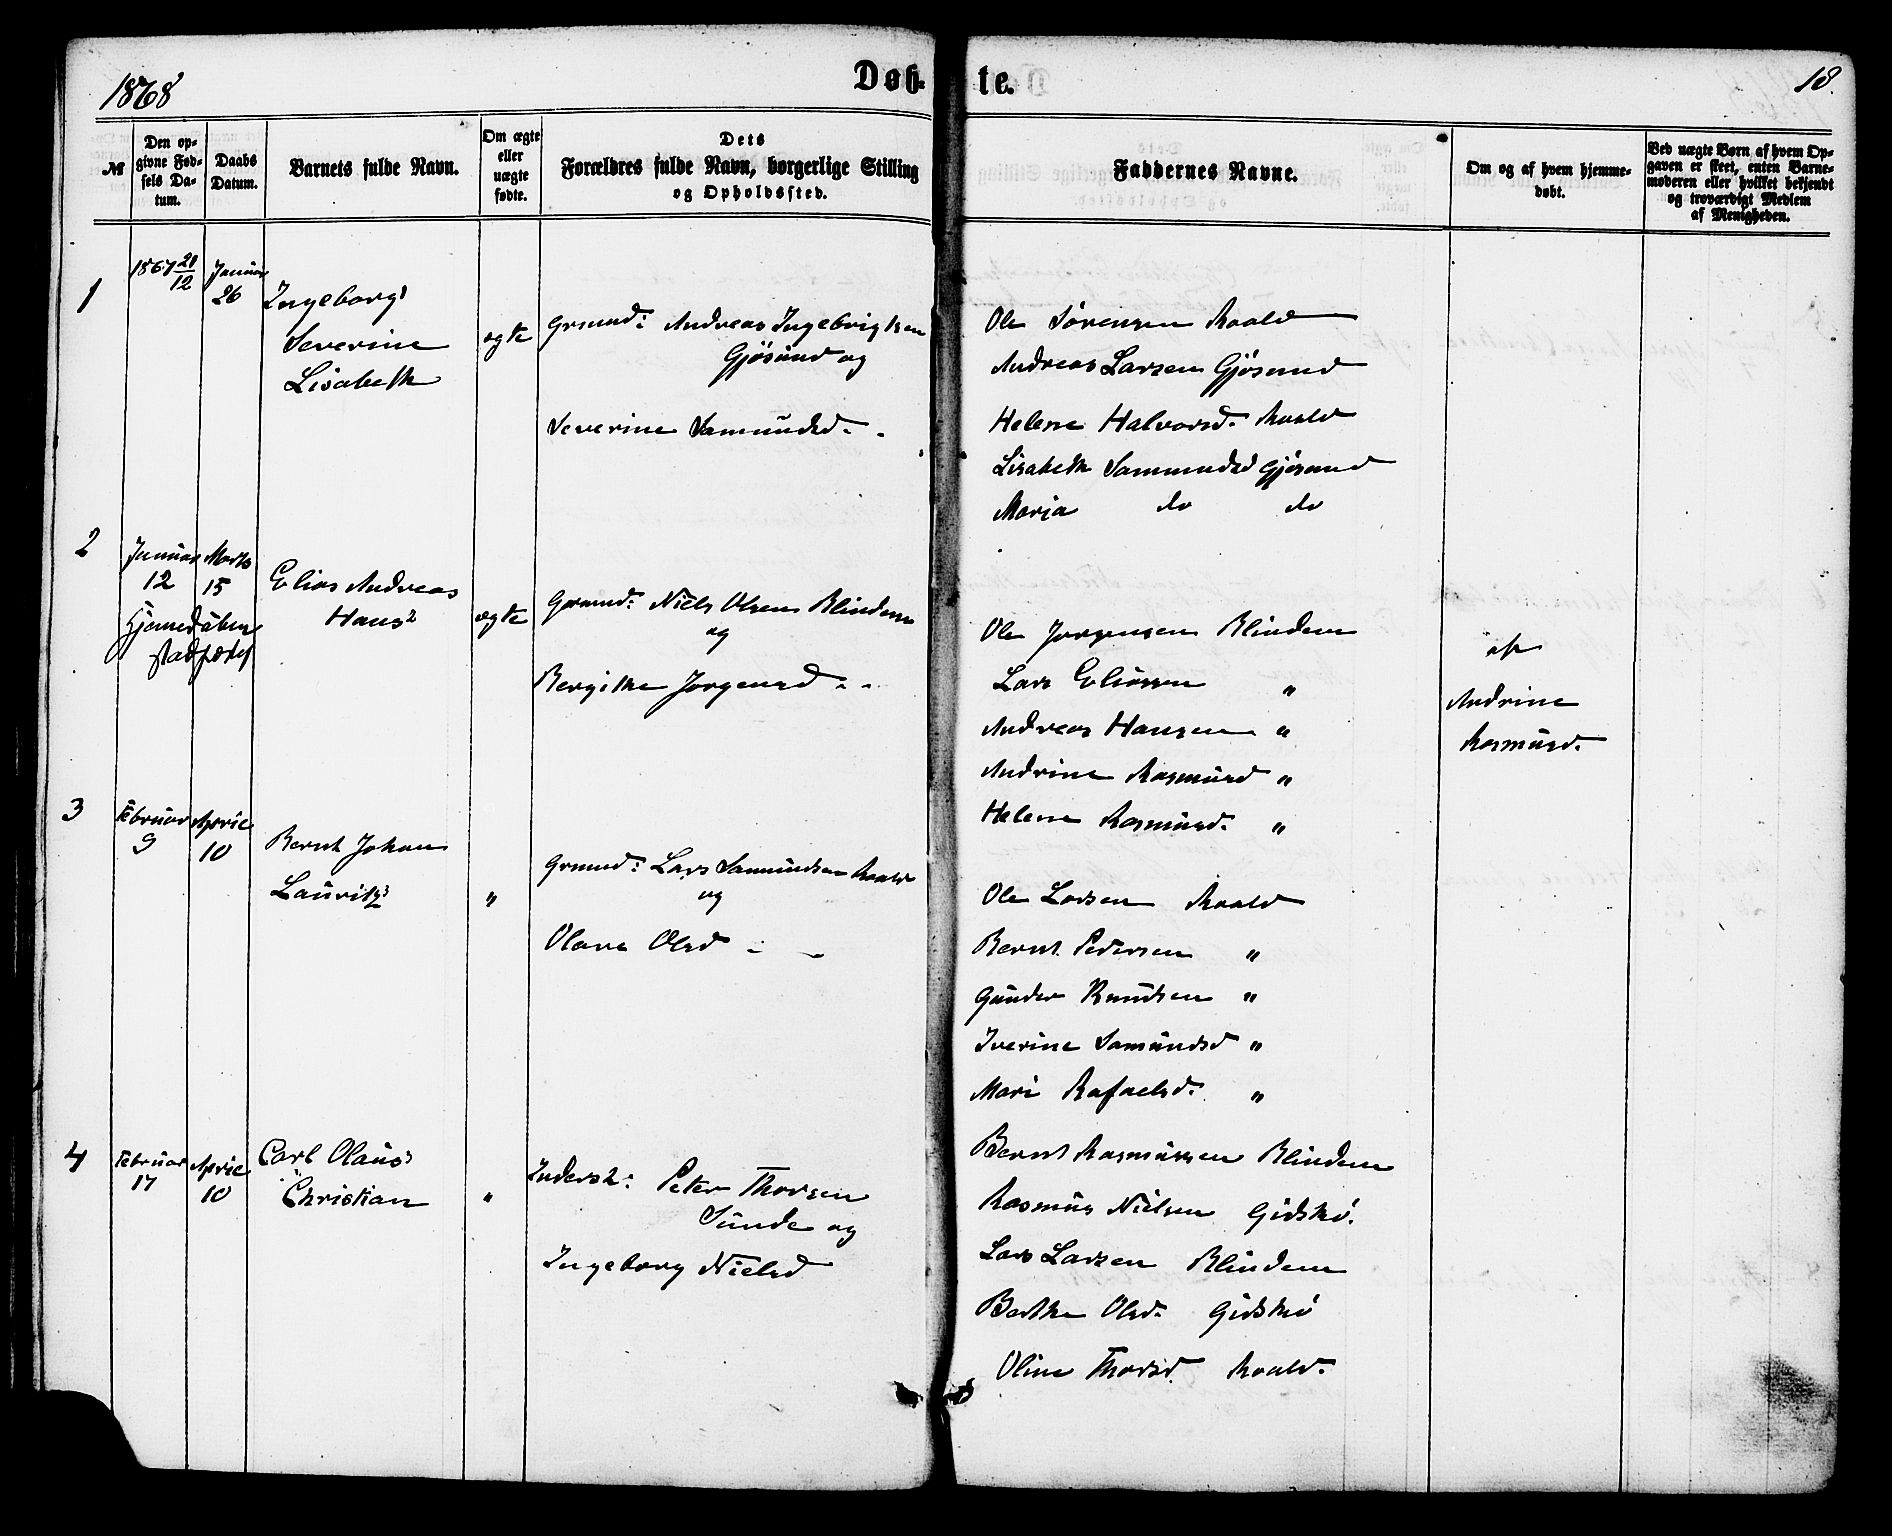 1868 Døb- te. 18.
№
Den opgivne Fødsels Datum.
Daabs Datum.
Barnets fulde Navn.
Om ægte eller uægte fødte.
Dets Forældres fulde Navn, borgerlige Stilling og Opholdssted.
Faddernes Navne.
Om og af hvem hjemmedøbt.
Ved uægte Børn af hvem Opgaven er skeet, enten Barnemoderen eller hvilket bekjendt og troværdigt Medlem af Menigheden.
1
1867 21/12
Januar 26
Ingeborg
Severine
Lisabeth
ægte
Grmd: Andreas Ingebrigtsen
Gjøsund og
Severine Samundsd. -
Ole Sørensen Roald
Andreas Larsen Gjøsund
Helene Halvorsd. Roald
Lisabeth Sammundsd Gjøsund
Maria do do
2
Januar 12
Marts 15
Elias Andreas
Hans
ægte
Grmd: Niels Olsen Blindem
og
Bergithe Jørgensd - -
Ole Jørgensen Blindem
Lars Eliassen "
Andreas Hansen "
Andrine Rasmusd "
Helene Rasmusd. "
af
Andrine
Rasmusd.
3
Februar 9
April 10
Bernt Johan
Lauritz
"
Grmd: Lars Samundsen Roald
og
Olave Olsd - -
Ole Larsen Roald
Bernt Pedersen "
Gunder Knudsen "
Iverine Samundsd "
Mari Rafaelsd. "
4
Februar 17
April 10
Carl Olaus
Christian
"
Inderst: Peter Thorsen
Sunde og
Ingeborg Nielsd
Bernt Rasmussen Blindem
Rasmus Nielsen Gidskø.
Lars Larsen Blindem
Berthe Olsd. Gidskø
Oline Thorsd. Roald.